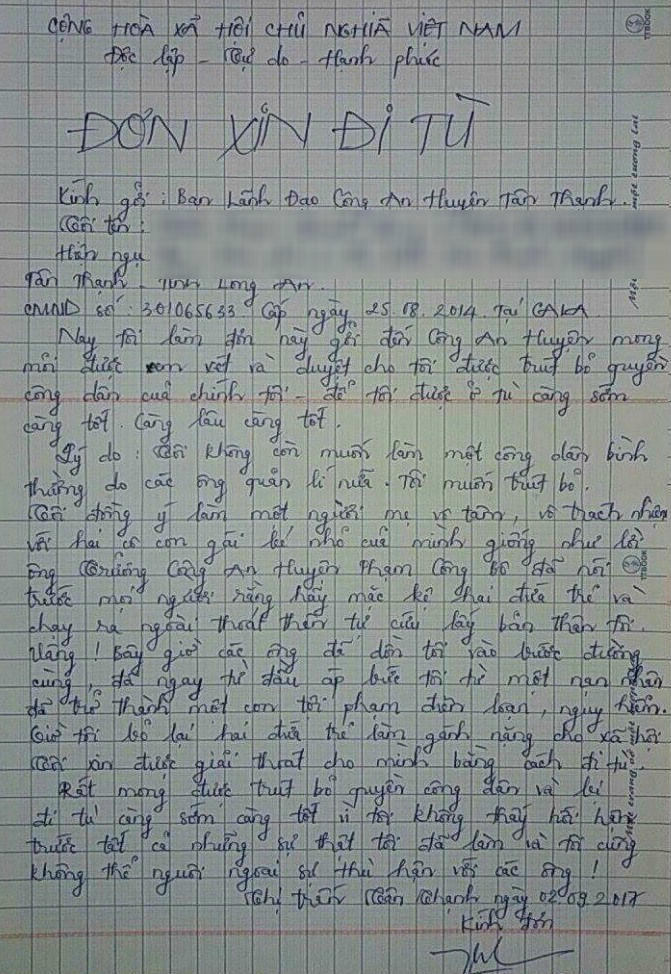 CỘNG HOÀ XÃ HỘI CHỦ NGHĨA VIỆT NAM
Độc lập - Tự do - Hạnh phúc
ĐƠN XIN ĐI TÙ
Kính gởi : Ban Lãnh Đạo Công An Huyện Tân Thạnh.
Tôi tên :
Hiện ngụ
Tân Thạnh - Tỉnh Long An.
CMND số : 301065633. Cấp ngày 25.08.2014. Tại CALA
Nay tôi làm đơn này gởi đến Công An Huyện mong
mỏi được xem xét và duyệt cho tôi được truất bỏ quyền
công dân của chính tôi - để tôi được ở tù càng sớm
càng tốt. Càng lâu càng tốt.
Lý do : Tôi không còn muốn làm một công dân bình
thường do các ông quản lí nữa. Tôi muốn truất bỏ.
Tôi đồng ý làm một người mẹ vô tâm, vô trách nhiệm
với hai cô con gái bé nhỏ của mình giống như lời
ông Trưởng Công An Huyện Phạm Công Bô đã nói
trước mọi người rằng hãy mặc kệ hai đứa trẻ và
chạy ra ngoài thoát thân tự cứu lấy bản thân tôi.
Vâng ! Bây giờ các ông đã dồn tôi vào bước đường
cùng, đã ngay từ đầu áp bức tôi từ một nạn nhân
đã trở thành một con tội phạm điên loạn, nguy hiểm.
Giờ tôi bỏ lại hai đứa trẻ làm gánh nặng cho xã hội
Tôi xin được giải thoát cho mình bằng cách đi tù.
Rất mong được truất bỏ quyền công dân và
đi tù càng sớm càng tốt vì tôi không thấy hối hận
trước tất cả những sự thật tôi đã làm và tôi cũng
không thể nguôi ngoai sự thù hận với các ông !
Thị trấn Tân Thạnh ngày 02.09.2017
Kính đơn